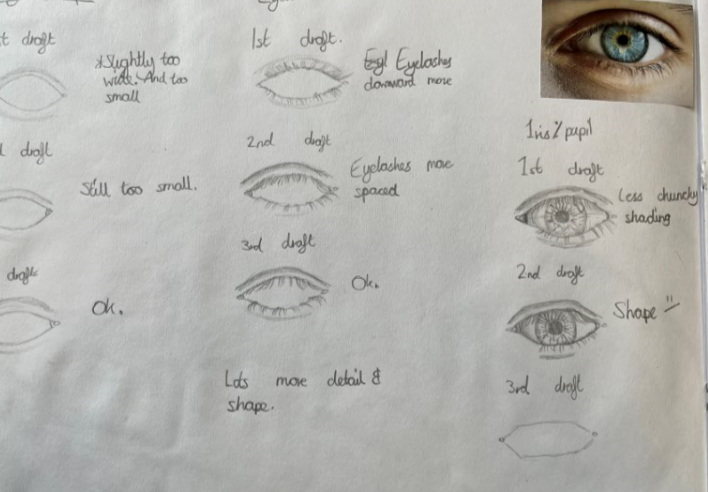 draft
*Slightly too
wide. And too
small
draft
Still too small.
draft
Ok.
1st draft.
Eyelashes
downward more
2nd draft
Eyelashes more
spaced
3rd draft
Ok.
Lots more detail &
shape.
Iris/pupil
1st draft
Less chuncky
shading
2nd draft
Shape
3rd draft